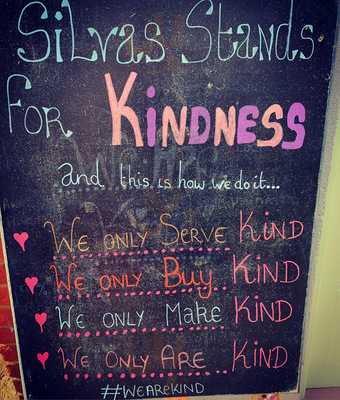 Silvas Stands
for KINDNESS
and this is how we do it...
WE ONLY SERVE KIND
WE ONLY BUY KIND
WE ONLY MAKE KIND
WE ONLY ARE KIND
#WEAREKIND